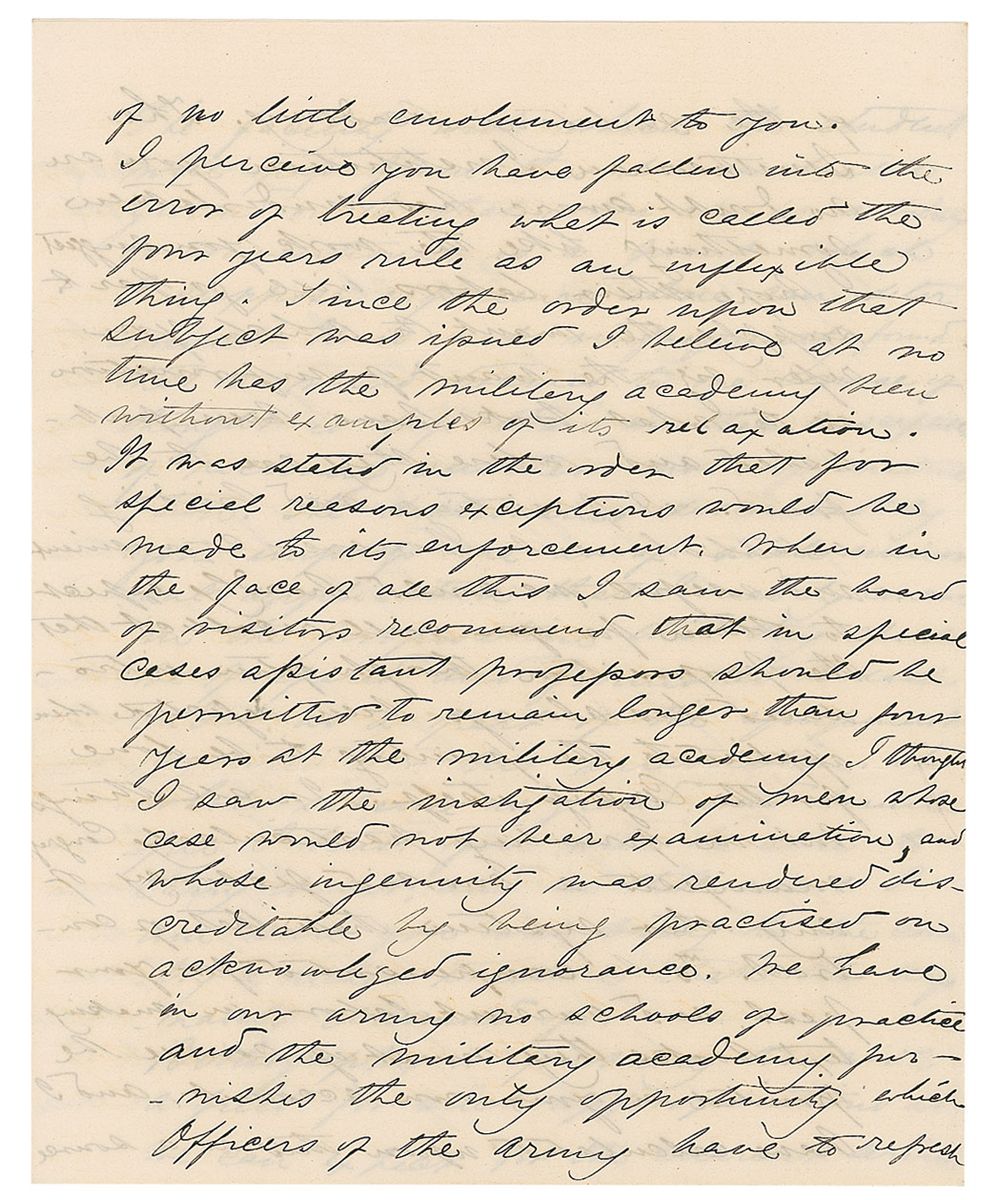 of no little emolument to you.
I perceive you have fallen into the
error of treating what is called the
four years rule as an inflexible
thing. Since the order upon that
subject was issued I believe at no
time has the military academy been
without examples of its relaxation.
It was stated in the order that for
special reasons exceptions would be
made to its enforcement. When in
the face of all this I saw the board
of visitors recommend that in special
cases assistant professors should be
permitted to remain longer than four
years at the military academy I thought
I saw the instigation of men whose
case would not bear examination, and
whose ingenuity was rendered dis-
creditable by being practised on
acknowleged ignorance. We have
in our army no schools of practice
and the military academy fur-
-nishes the only opportunity which
Officers of the Army have to refresh